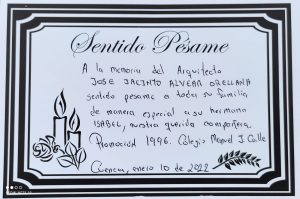 Sentido Pésame
A la memoria del Arquitecto
JOSE JACINTO ALVEAR ORELLANA
sentido pesame a toda su familia
de manera especial a su hermana
ISABEL, nuestra querida compañera.
Promoción 1996. Colegio Manuel J. Calle
Cuenca, enero 10 de 2022